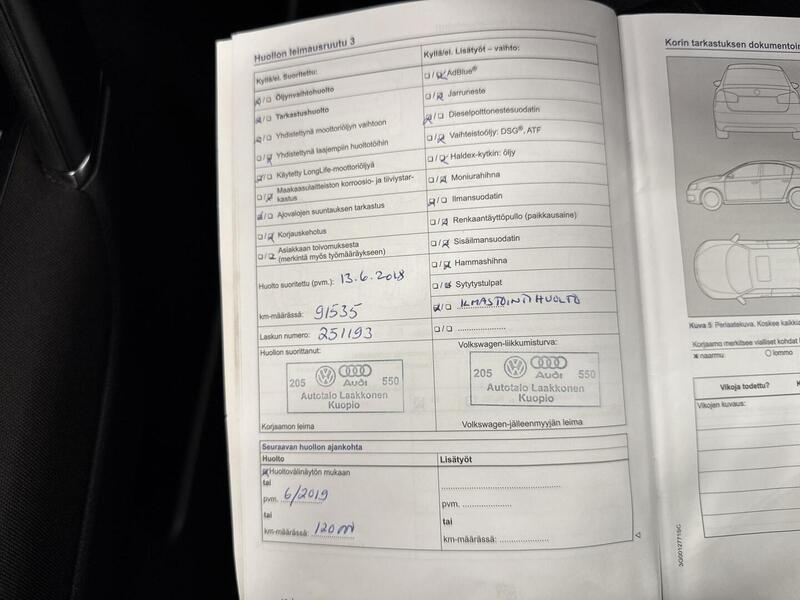 Huollon leimausruutu 3
Kyllä/ei. Suoritettu:
☒/☐ Öljynvaihtohuolto
☒/☐ Tarkastushuolto
☒/☐ Yhdistettynä moottoriöljyn vaihtoon
☐/☒ Yhdistettynä laajempiin huoltotöihin
☒/☐ Käytetty LongLife-moottoriöljyä
☐/☒ Maakaasulaitteiston korroosio- ja tiiviystar-
kastus
☒/☐ Ajovalojen suuntauksen tarkastus
☐/☒ Korjauskehotus
☐/☒ Asiakkaan toivomuksesta
(merkintä myös työmääräykseen)
Huolto suoritettu (pvm.): 13.6.2018
km-määrässä: 91535
Laskun numero: 251193
Huollon suorittanut:
205 Audi 550
Autotalo Laakkonen
Kuopio
Korjaamon leima
Kyllä/ei. Lisätyöt – vaihto:
☐/☒ AdBlue®
☐/☒ Jarruneste
☒/☐ Dieselpolttonestesuodatin
☐/☒ Vaihteistoöljy: DSG®, ATF
☐/☒ Haldex-kytkin: öljy
☐/☒ Moniurahihna
☒/☐ Ilmansuodatin
☐/☒ Renkaantäyttöpullo (paikkausaine)
☐/☒ Sisäilmansuodatin
☐/☒ Hammashihna
☐/☒ Sytytystulpat
☒/☐ ILMASTOINTIHUOLTO
☐/☐ ....................
Volkswagen-liikkumisturva:
205 Audi 550
Autotalo Laakkonen
Kuopio
Volkswagen-jälleenmyyjän leima
Seuraavan huollon ajankohta
Huolto
☒ Huoltovälinäytön mukaan
tai
pvm. 6/2019
tai
km-määrässä: 120
Lisätyöt
....................
pvm. ....................
tai
km-määrässä: ....................
Korin tarkastuksen dokumentoin
Kuva 5 Periaatekuva. Koskee kaikki
Korjaamo merkitsee vialliset kohdat
x naarmu O lommo
Vikoja todettu?
Vikojen kuvaus:
3G0012771SC